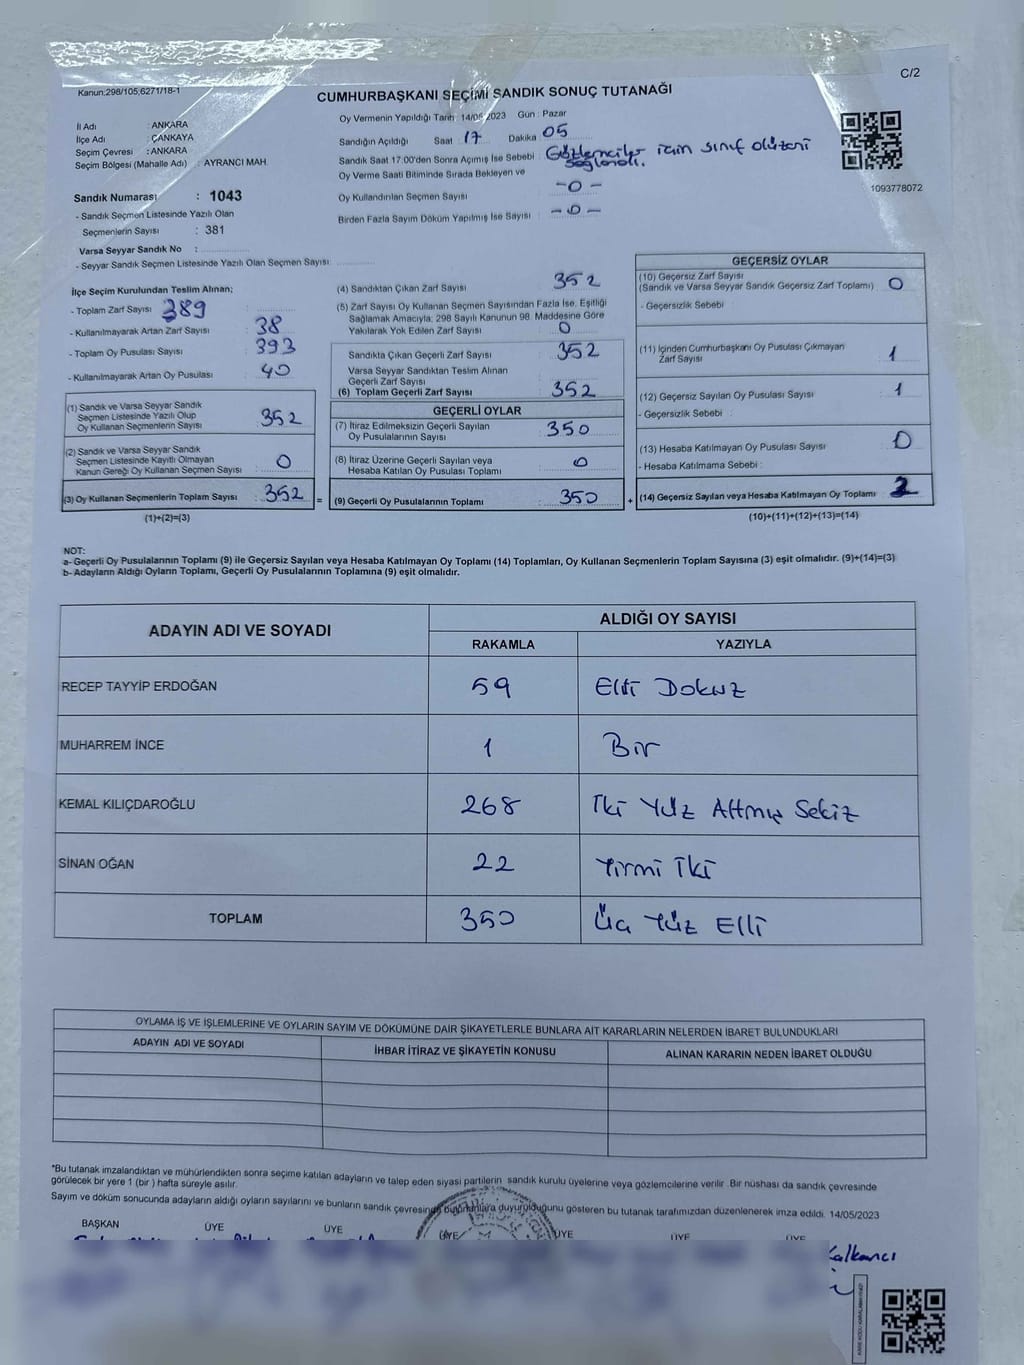 C/2
Kanun:298/105,6271/18-1
CUMHURBAŞKANI SEÇİMİ SANDIK SONUÇ TUTANAĞI
İl Adı : ANKARA
İlçe Adı : ÇANKAYA
Seçim Çevresi : ANKARA
Seçim Bölgesi (Mahalle Adı) : AYRANCI MAH
Sandık Numarası : 1043
- Sandık Seçmen Listesinde Yazılı Olan
Seçmenlerin Sayısı : 381
Varsa Seyyar Sandık No :
- Seyyar Sandık Seçmen Listesinde Yazılı Olan Seçmen Sayısı:
Oy Vermenin Yapıldığı Tarih : 14/05/2023 Gün : Pazar
Sandığın Açıldığı Saat : 17 Dakika : 05
Sandık Saat 17:00'den Sonra Açılmış İse Sebebi : Gözlemciler için sınıf düzeni
sağlandı.
Oy Verme Saati Bitiminde Sırada Bekleyen ve
Oy Kullandırılan Seçmen Sayısı : -0-
Birden Fazla Sayım Döküm Yapılmış İse Sayısı : -0-
1093778072
İlçe Seçim Kurulundan Teslim Alınan;
- Toplam Zarf Sayısı : 389
- Kullanılmayarak Artan Zarf Sayısı : 38
- Toplam Oy Pusulası Sayısı : 393
- Kullanılmayarak Artan Oy Pusulası : 40
(1) Sandık ve Varsa Seyyar Sandık
Seçmen Listesinde Yazılı Olup
Oy Kullanan Seçmenlerin Sayısı : 352
(2) Sandık ve Varsa Seyyar Sandık
Seçmen Listesinde Kayıtlı Olmayan
Kanun Gereği Oy Kullanan Seçmen Sayısı : 0
(3) Oy Kullanan Seçmenlerin Toplam Sayısı : 352 =
(1)+(2)=(3)
(4) Sandıktan Çıkan Zarf Sayısı : 352
(5) Zarf Sayısı Oy Kullanan Seçmen Sayısından Fazla İse, Eşitliği
Sağlamak Amacıyla; 298 Sayılı Kanunun 98. Maddesine Göre
Yakılarak Yok Edilen Zarf Sayısı : 0
Sandıkta Çıkan Geçerli Zarf Sayısı : 352
Varsa Seyyar Sandıktan Teslim Alınan
Geçerli Zarf Sayısı :
(6) Toplam Geçerli Zarf Sayısı : 352
GEÇERLİ OYLAR
(7) İtiraz Edilmeksizin Geçerli Sayılan
Oy Pusulalarının Sayısı : 350
(8) İtiraz Üzerine Geçerli Sayılan veya
Hesaba Katılan Oy Pusulası Toplamı : 0
(9) Geçerli Oy Pusulalarının Toplamı : 350 +
GEÇERSİZ OYLAR
(10) Geçersiz Zarf Sayısı
(Sandık ve Varsa Seyyar Sandık Geçersiz Zarf Toplamı) : 0
- Geçersizlik Sebebi :
(11) İçinden Cumhurbaşkanı Oy Pusulası Çıkmayan
Zarf Sayısı : 1
(12) Geçersiz Sayılan Oy Pusulası Sayısı : 1
- Geçersizlik Sebebi :
(13) Hesaba Katılmayan Oy Pusulası Sayısı : 0
- Hesaba Katılmama Sebebi :
(14) Geçersiz Sayılan veya Hesaba Katılmayan Oy Toplamı : 2
(10)+(11)+(12)+(13)=(14)
NOT:
a- Geçerli Oy Pusulalarının Toplamı (9) ile Geçersiz Sayılan veya Hesaba Katılmayan Oy Toplamı (14) Toplamları, Oy Kullanan Seçmenlerin Toplam Sayısına (3) eşit olmalıdır. (9)+(14)=(3)
b- Adayların Aldığı Oyların Toplamı, Geçerli Oy Pusulalarının Toplamına (9) eşit olmalıdır.
ADAYIN ADI VE SOYADI
ALDIĞI OY SAYISI
RAKAMLA YAZIYLA
RECEP TAYYİP ERDOĞAN 59 Elli Dokuz
MUHARREM İNCE 1 Bir
KEMAL KILIÇDAROĞLU 268 İki Yüz Altmış Sekiz
SİNAN OĞAN 22 Yirmi İki
TOPLAM 350 Üç Yüz Elli
OYLAMA İŞ VE İŞLEMLERİNE VE OYLARIN SAYIM VE DÖKÜMÜNE DAİR ŞİKAYETLERLE BUNLARA AİT KARARLARIN NELERDEN İBARET BULUNDUKLARI
ADAYIN ADI VE SOYADI İHBAR İTİRAZ VE ŞİKAYETİN KONUSU ALINAN KARARIN NEDEN İBARET OLDUĞU
*Bu tutanak imzalandıktan ve mühürlendikten sonra seçime katılan adayların ve talep eden siyasi partilerin sandık kurulu üyelerine veya gözlemcilerine verilir. Bir nüshası da sandık çevresinde
görülecek bir yere 1 (bir) hafta süreyle asılır.
Sayım ve döküm sonucunda adayların aldığı oyların sayılarını ve bunların sandık çevresinde bulunanlara duyurulduğunu gösteren bu tutanak tarafımızdan düzenlenerek imza edildi. 14/05/2023
BAŞKAN ÜYE ÜYE ÜYE ÜYE ÜYE ÜYE
Kalkancı